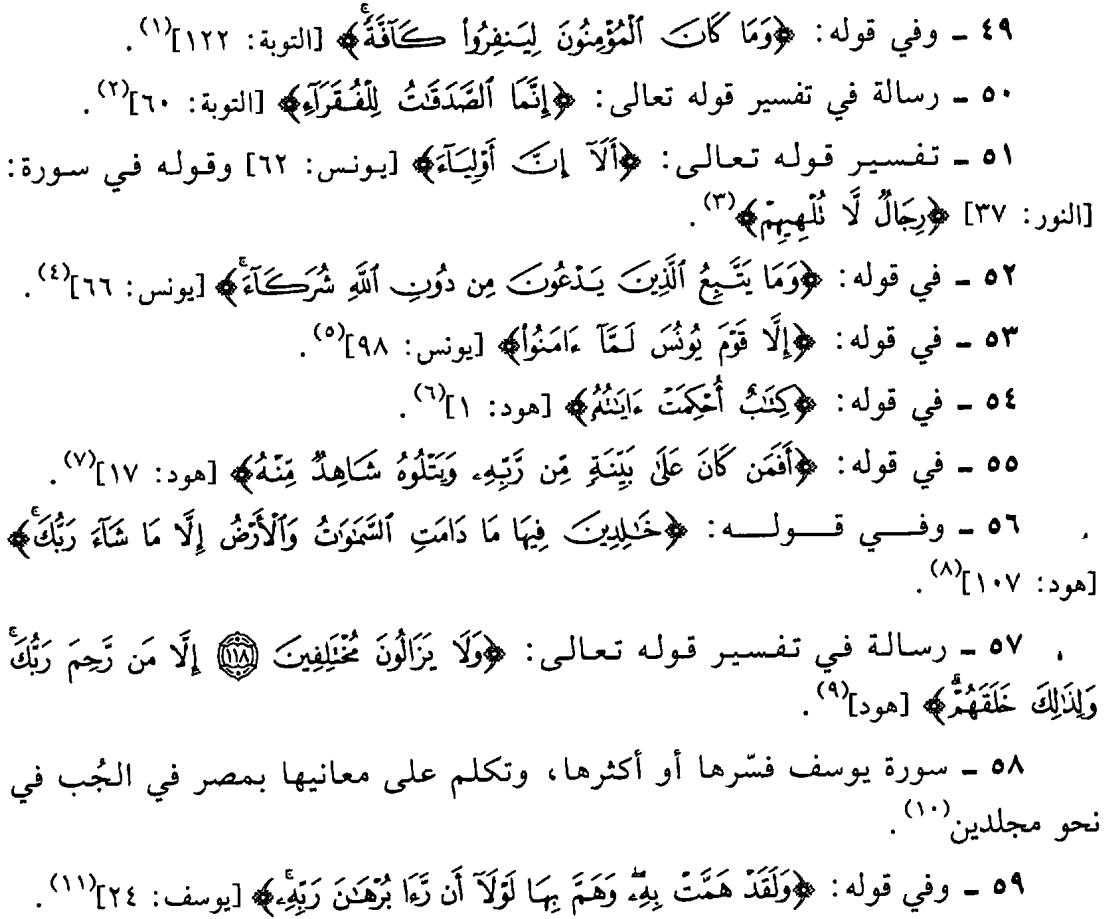 ٤٩ ـ وفي قوله: ﴿وَمَا كَانَ ٱلْمُؤْمِنُونَ لِيَنفِرُوا۟ كَآفَّةً ۚ﴾ [التوبة: ١٢٢](١).
٥٠ ـ رسالة في تفسير قوله تعالى: ﴿إِنَّمَا ٱلصَّدَقَـٰتُ لِلْفُقَرَآءِ﴾ [التوبة: ٦٠](٢).
٥١ ـ تفسير قوله تعالى: ﴿أَلَآ إِنَّ أَوْلِيَآءَ﴾ [يونس: ٦٢] وقوله في سورة:
[النور: ٣٧] ﴿رِجَالٌ لَّا تُلْهِيهِمْ﴾(٣).
٥٢ ـ في قوله: ﴿وَمَا يَتَّبِعُ ٱلَّذِينَ يَدْعُونَ مِن دُونِ ٱللَّهِ شُرَكَآءَ ۚ﴾ [يونس: ٦٦](٤).
٥٣ ـ في قوله: ﴿إِلَّا قَوْمَ يُونُسَ لَمَّآ ءَامَنُوا۟﴾ [يونس: ٩٨](٥).
٥٤ ـ في قوله: ﴿كِتَـٰبٌ أُحْكِمَتْ ءَايَـٰتُهُۥ﴾ [هود: ١](٦).
٥٥ ـ في قوله: ﴿أَفَمَن كَانَ عَلَىٰ بَيِّنَةٍ مِّن رَّبِّهِۦ وَيَتْلُوهُ شَاهِدٌ مِّنْهُ﴾ [هود: ١٧](٧).
٥٦ ـ وفي قوله: ﴿خَـٰلِدِينَ فِيهَا مَا دَامَتِ ٱلسَّمَـٰوَٰتُ وَٱلْأَرْضُ إِلَّا مَا شَآءَ رَبُّكَ ۚ﴾
[هود: ١٠٧](٨).
٥٧ ـ رسالة في تفسير قوله تعالى: ﴿وَلَا يَزَالُونَ مُخْتَلِفِينَ ۝١١٨ إِلَّا مَن رَّحِمَ رَبُّكَ ۚ
وَلِذَٰلِكَ خَلَقَهُمْ ۗ﴾ [هود](٩).
٥٨ ـ سورة يوسف فسّرها أو أكثرها، وتكلم على معانيها بمصر في الجُب في
نحو مجلدين(١٠).
٥٩ ـ وفي قوله: ﴿وَلَقَدْ هَمَّتْ بِهِۦ ۖ وَهَمَّ بِهَا لَوْلَآ أَن رَّءَا بُرْهَـٰنَ رَبِّهِۦ ۚ﴾ [يوسف: ٢٤](١١).